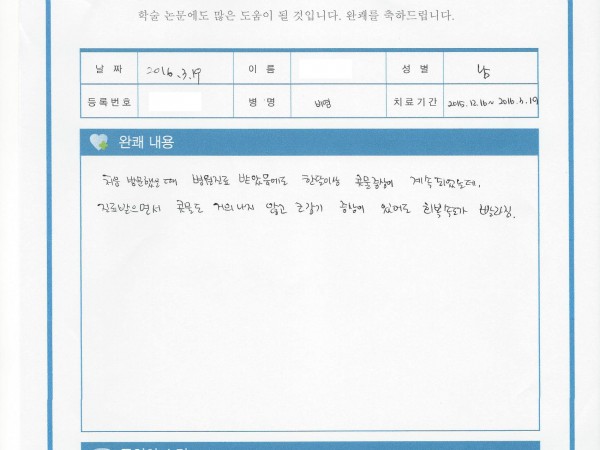 학술 논문에도 많은 도움이 될 것입니다. 완쾌를 축하드립니다.
날 짜 2016.3.19 이 름 성 별 남
등록번호 병 명 비염 치료기간 2015.12.16~ 2016.3.19
완쾌 내용
처음 방문했을 때 병원진료 받았음에도 한달이상 콧물증상이 계속되었는데,
진료받으면서 콧물도 거의 나지 않고 코감기 증상이 있어도 회복속도가 빨라짐.